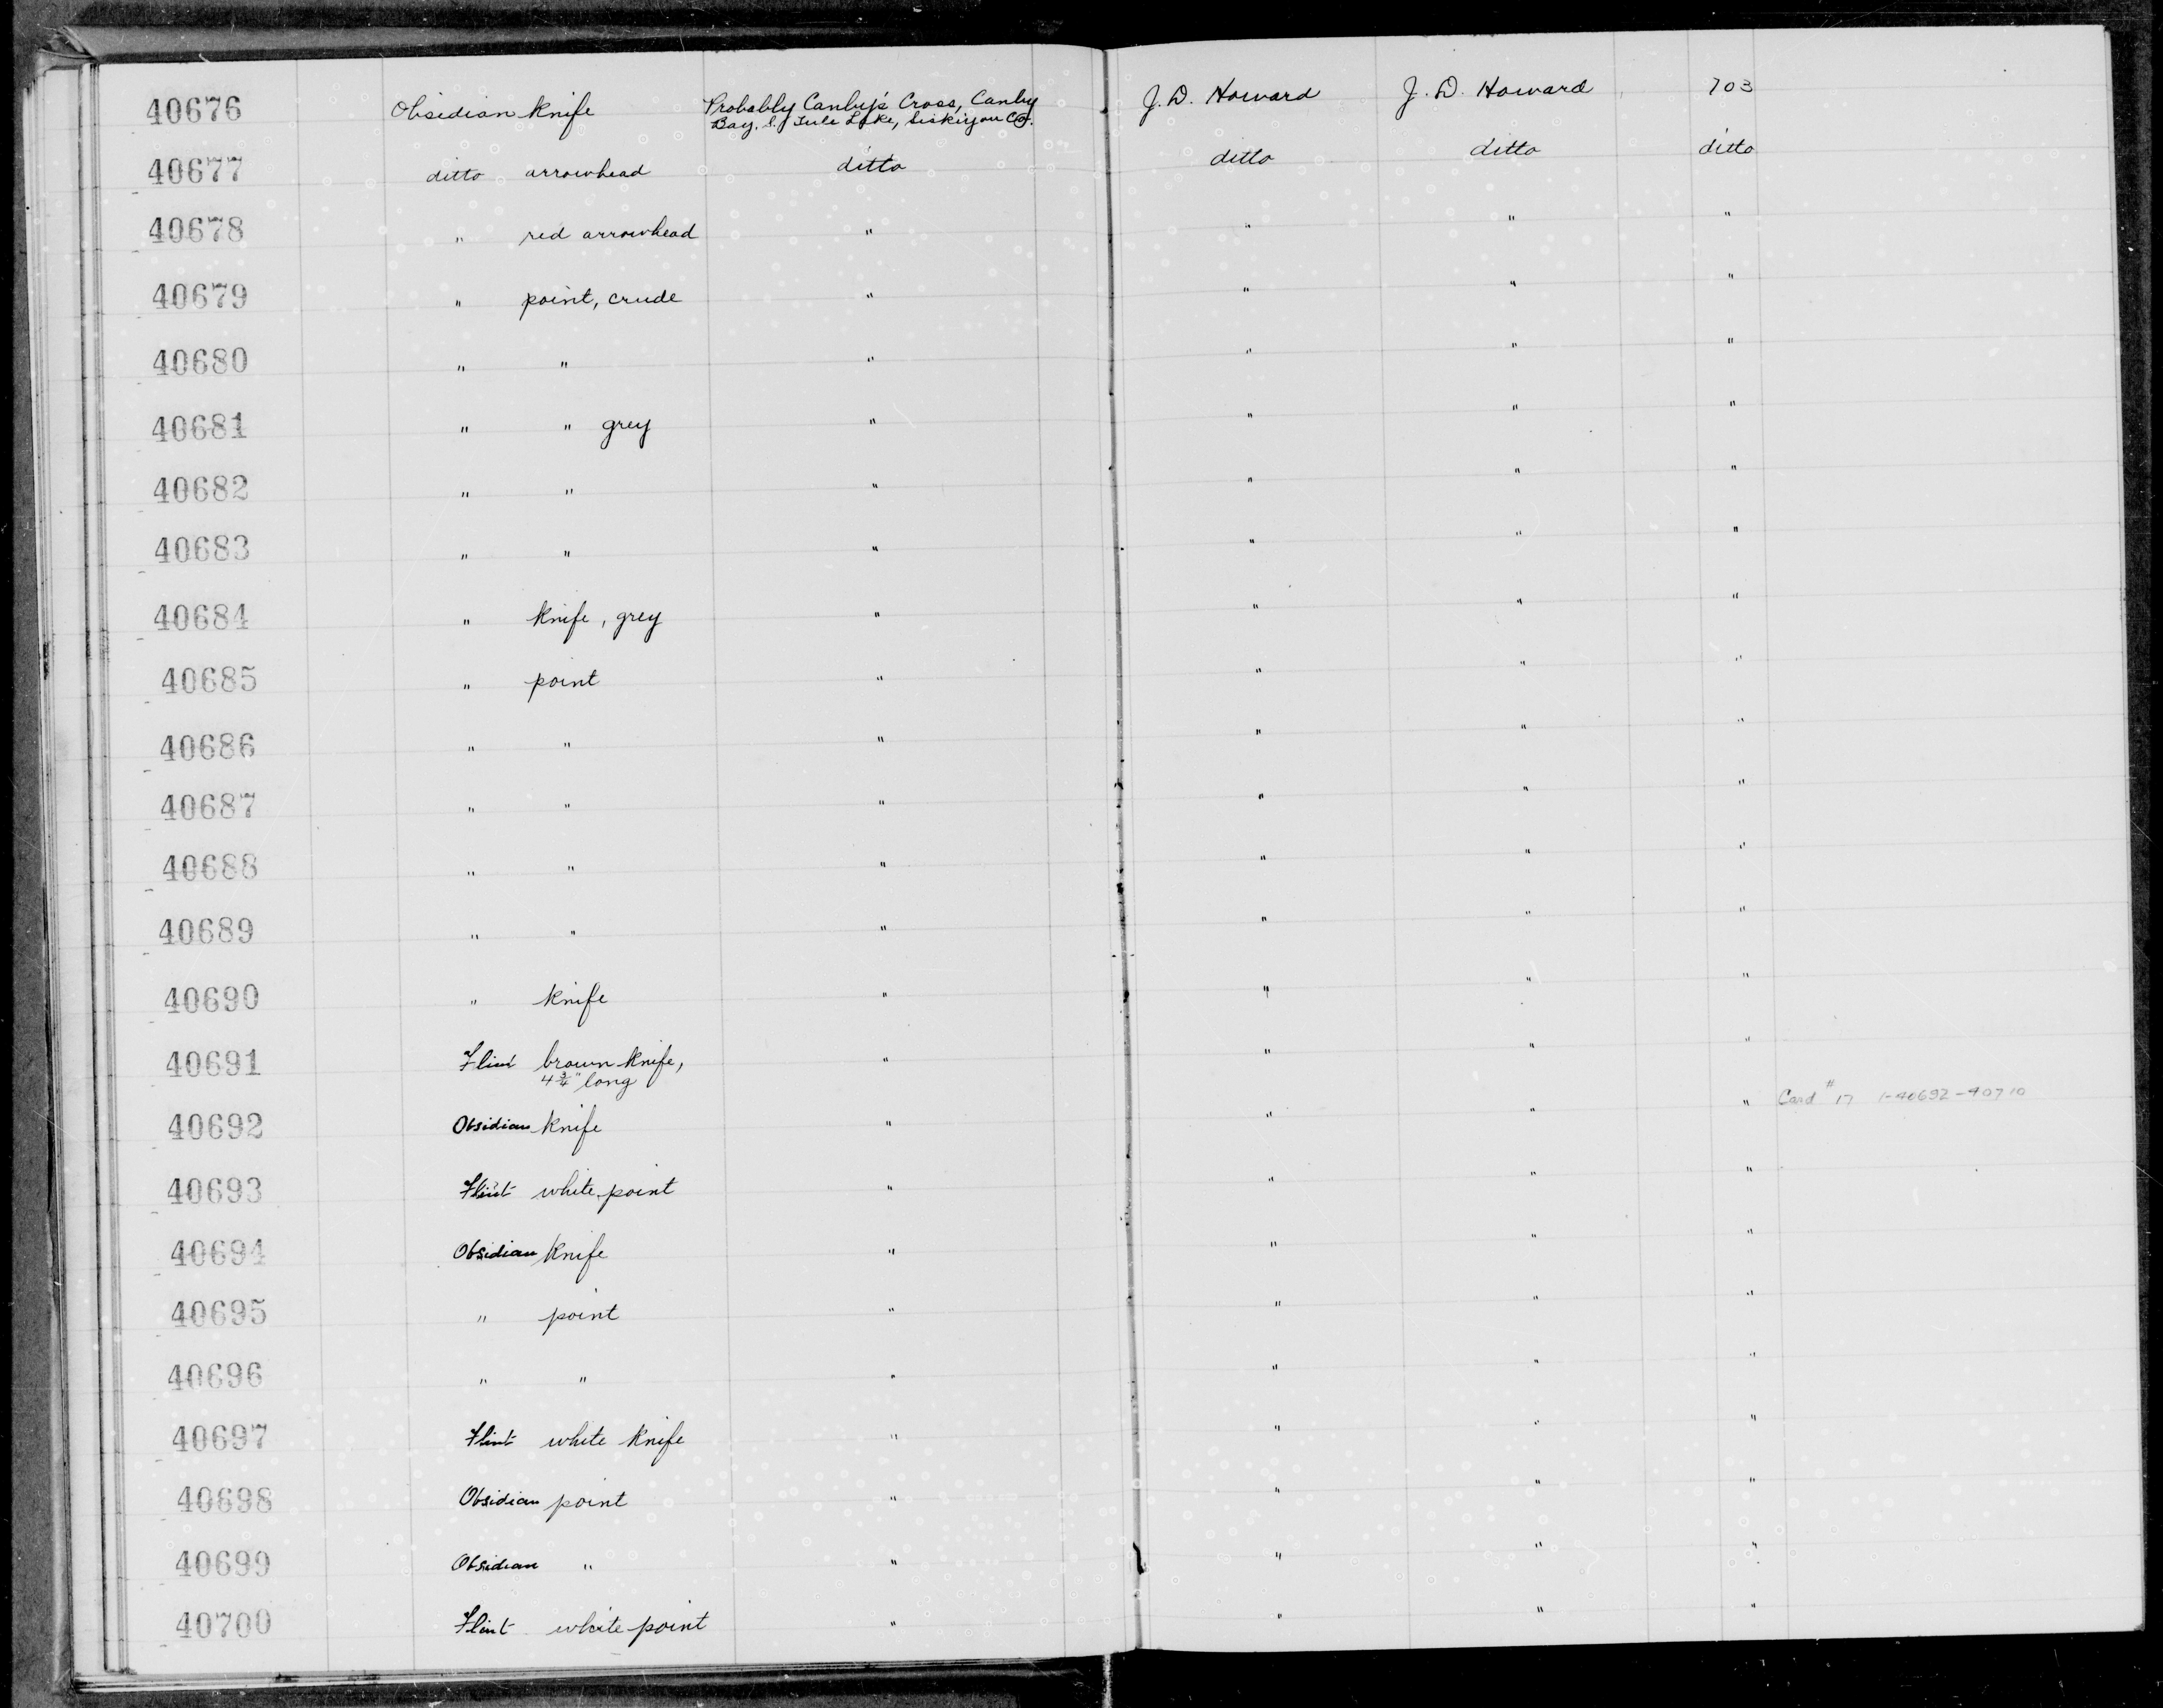 40676 Obsidian knife Probably Canby's Cross, Canby J. D. Howard J. D. Howard 703
Bay, S. of Tule Lake, Siskiyou Co.
40677 ditto arrowhead ditto ditto ditto ditto
40678 " red arrowhead " " " "
40679 " point, crude " " " "
40680 " " " " " "
40681 " " grey " " " "
40682 " " " " " "
40683 " " " " " "
40684 " knife, grey " " " "
40685 " point " " " "
40686 " " " " " "
40687 " " " " " "
40688 " " " " " "
40689 " " " " " "
40690 " knife " " " "
40691 Flint brown knife, " " " "
4 3/4" long
40692 Obsidian knife " " " " Card # 17 1-40692-40710
40693 Flint white point " " " "
40694 Obsidian knife " " " "
40695 " point " " " "
40696 " " " " " "
40697 Flint white knife " " " "
40698 Obsidian point " " " "
40699 Obsidian " " " " "
40700 Flint white point " " " "